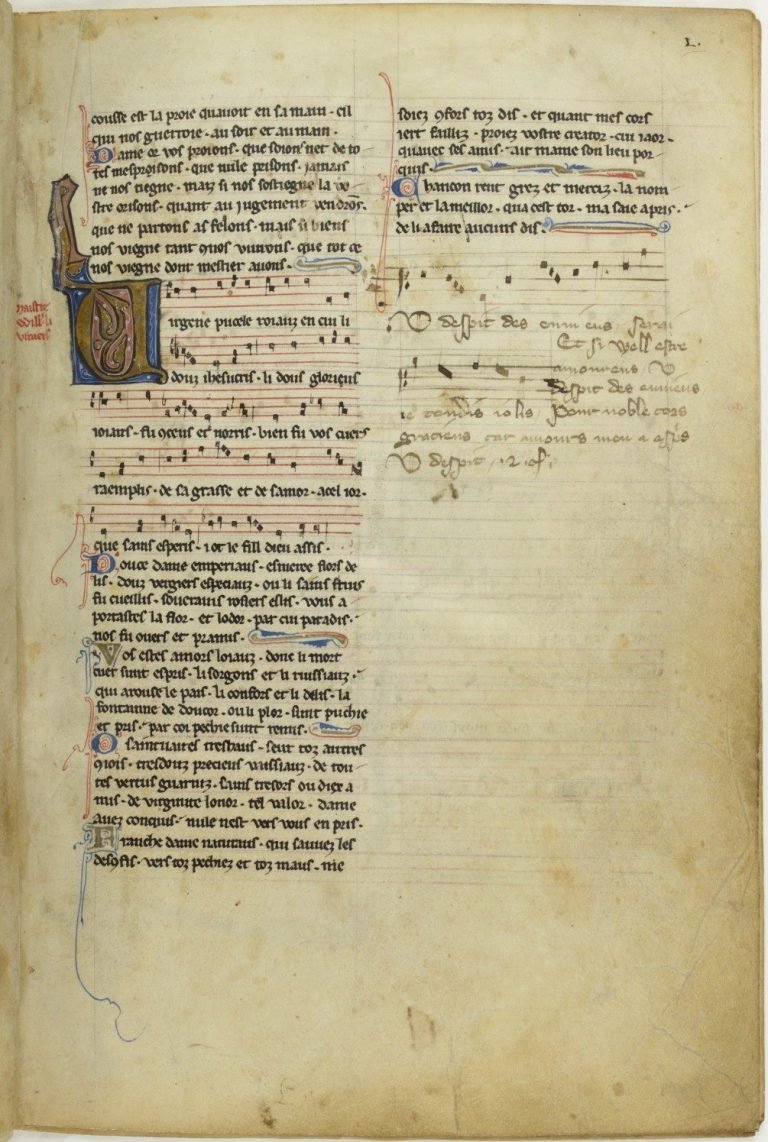 L.
cousse est la proie quavoit en sa main · cil
qui nos guerroie · au soir et au main ·
Dame or vos proions · que soions net de to
tes mesprisons · que nule prisons · jamais
ne nos tiegne · mais si nos sostiegne la vo
stre orisons · quant au jugement vendrōs ·
que ne partons as felons · mais si biens
nos viegne tant 9nos vivrons · que tot ce
nos viegne dont mestier avons ·
Maistre
Will li
viniers
Virgene pucele roiauz en cui li
douz ihesucris · li dous glorieus
roiaus · fu 9ceus et norris · bien fu vos cuers
raemplis · de sa grasse et de samor · a cel ior ·
que sains esperis · i ot le fill dieu assis ·
Douce dame emperiaus · esmeree flors de
lis · douz vergiers especiauz · ou li sains fruis
fu cueillis · soverains rosiers eslis · vous a
portastes la flor · et lodor · par cui paradis ·
nos fu overs et pramis ·
Vos estes amors loiauz · dont li mort
cuer sunt espris · li sorgons et li ruissiauz ·
qui arouse le pais · li confors et li delis · la
fontainne de douçor · ou li plor · sunt puchie
et pris · par coi pechie sunt remis ·
O saintuaires tresbiaus · seur toz autres
9iois · tresdouz precieus vaissiauz · de tou
tes vertus guarniz · sains tresors ou diex a
mis · de virginite lonor · tel valor · dame
avez conquis · nule nest vers vous en pris ·
Franche dame naturaus · qui sauvez les
des9fis · vers toz pechiez et toz maus · me
soiez 9fors toz dis · et quant mes cors
iert failliz · proiez vostre creator · cui iaor ·
quavec ses amis · ait mame son lieu por
quis ·
Chancon rent grez et merciz · la nom
per et la meillor · qua cest tor · ma s aie apris ·
de li a faire aucuns dis ·
U despit des envieus serai
Et si well estre
amoureus / U
despit des envieus
ie tendis iolis / Pour noble cors
gracieus car amours men a
U despit ·